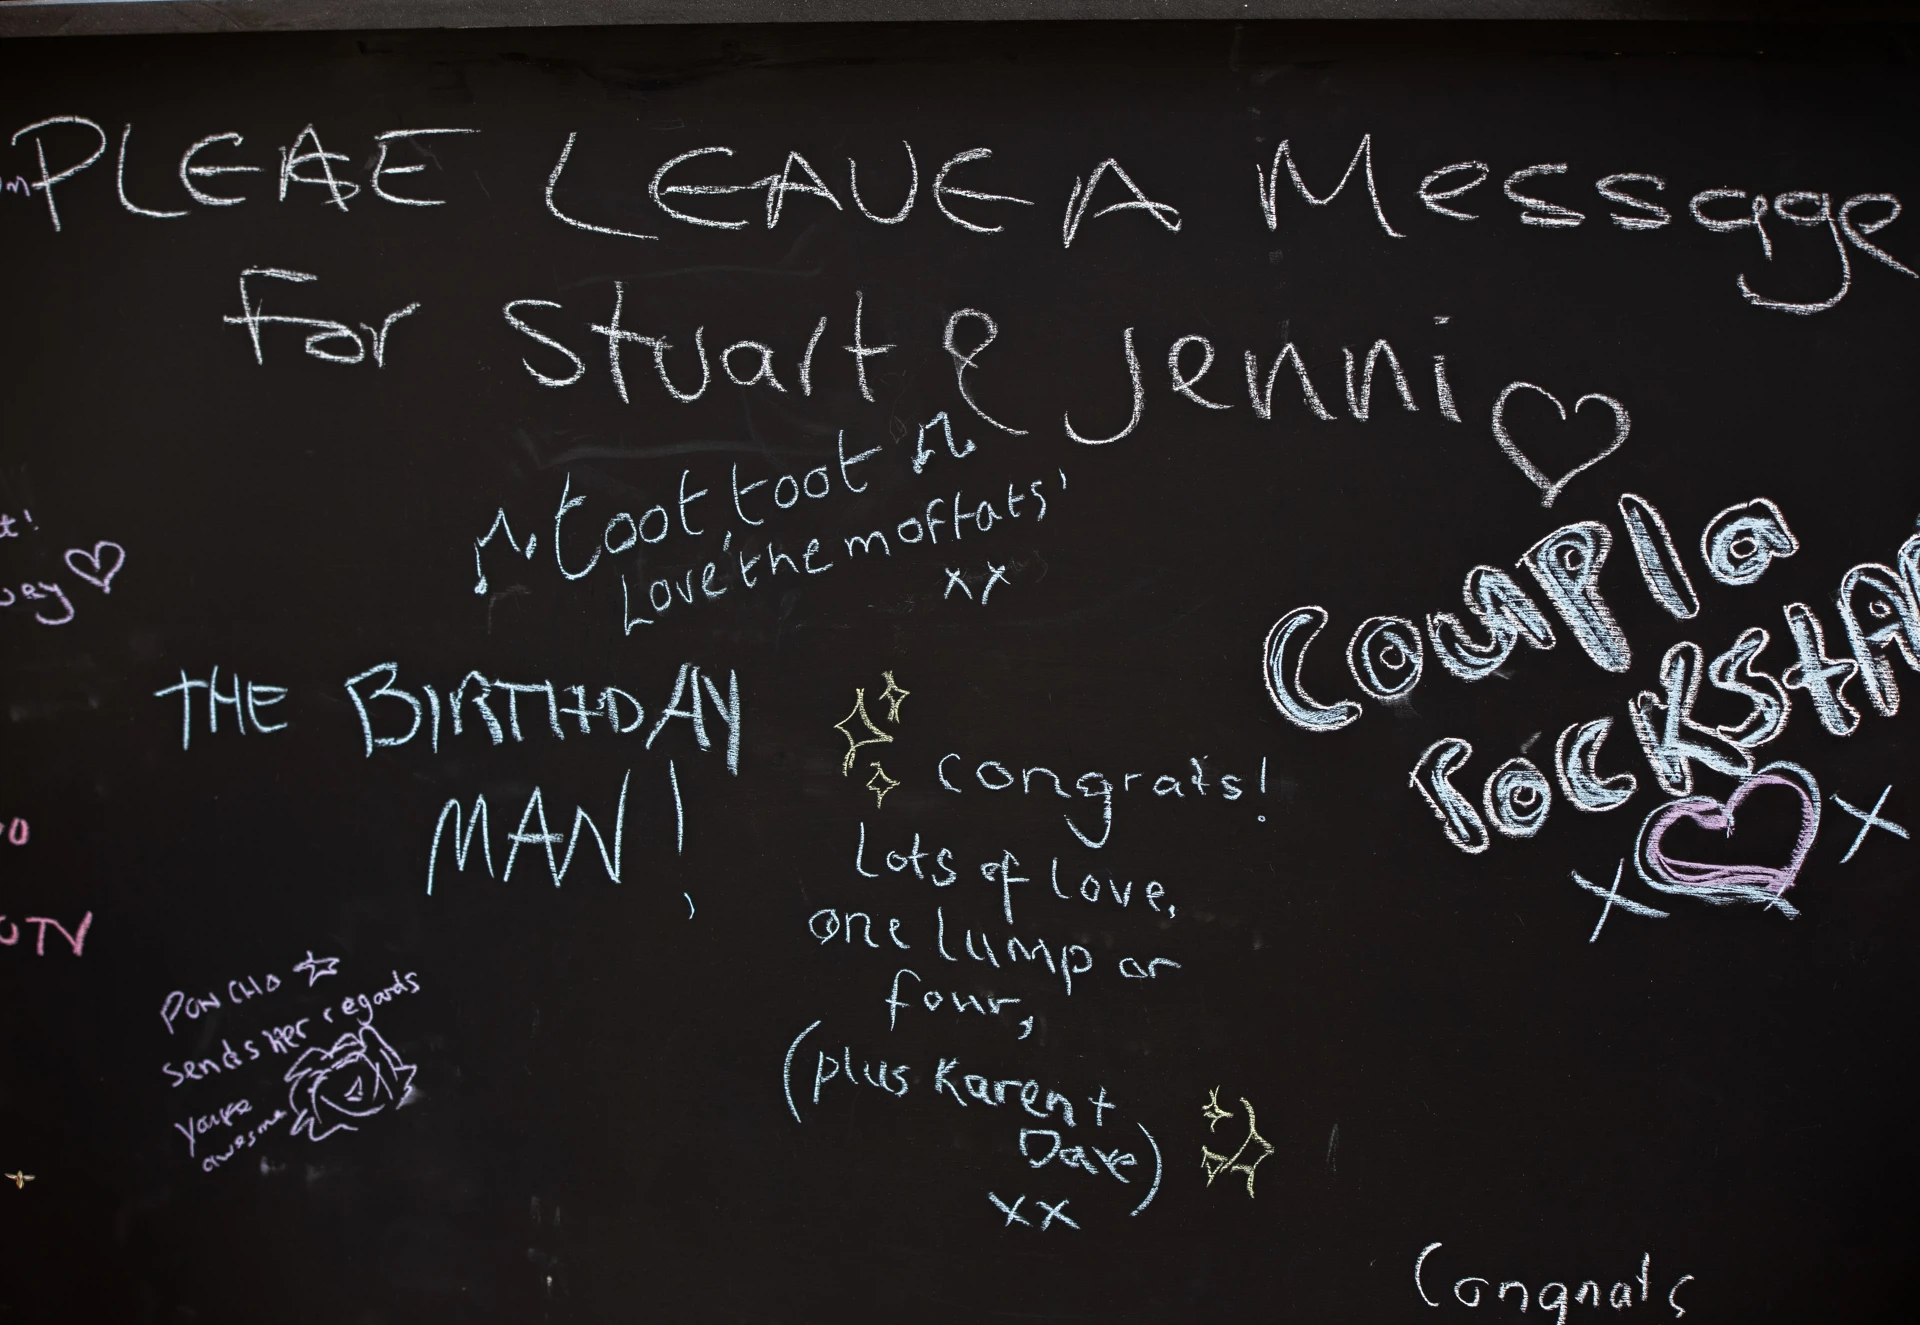 PLEASE LEAVE A Message
For Stuart & Jenni
toot, toot
Love 'the moffats'
xx
Coupla
rockstar
x
x
THE BIRTHDAY
MAN!
congrats!
Lots of love,
one lump or
four,
(plus Karen +
Dave)
xx
PONCHO
sends her regards
you're
awesome
Congrats